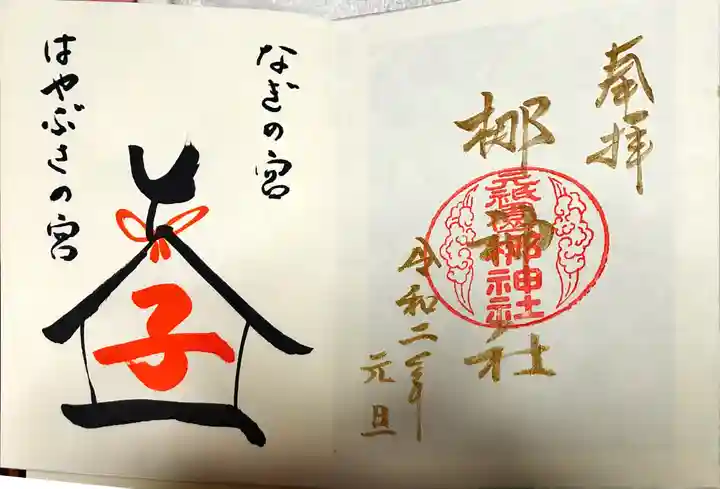 奉拝
梛神社
元祇園梛神社
令和二年
元旦
なぎの宮
はやぶさの宮
子